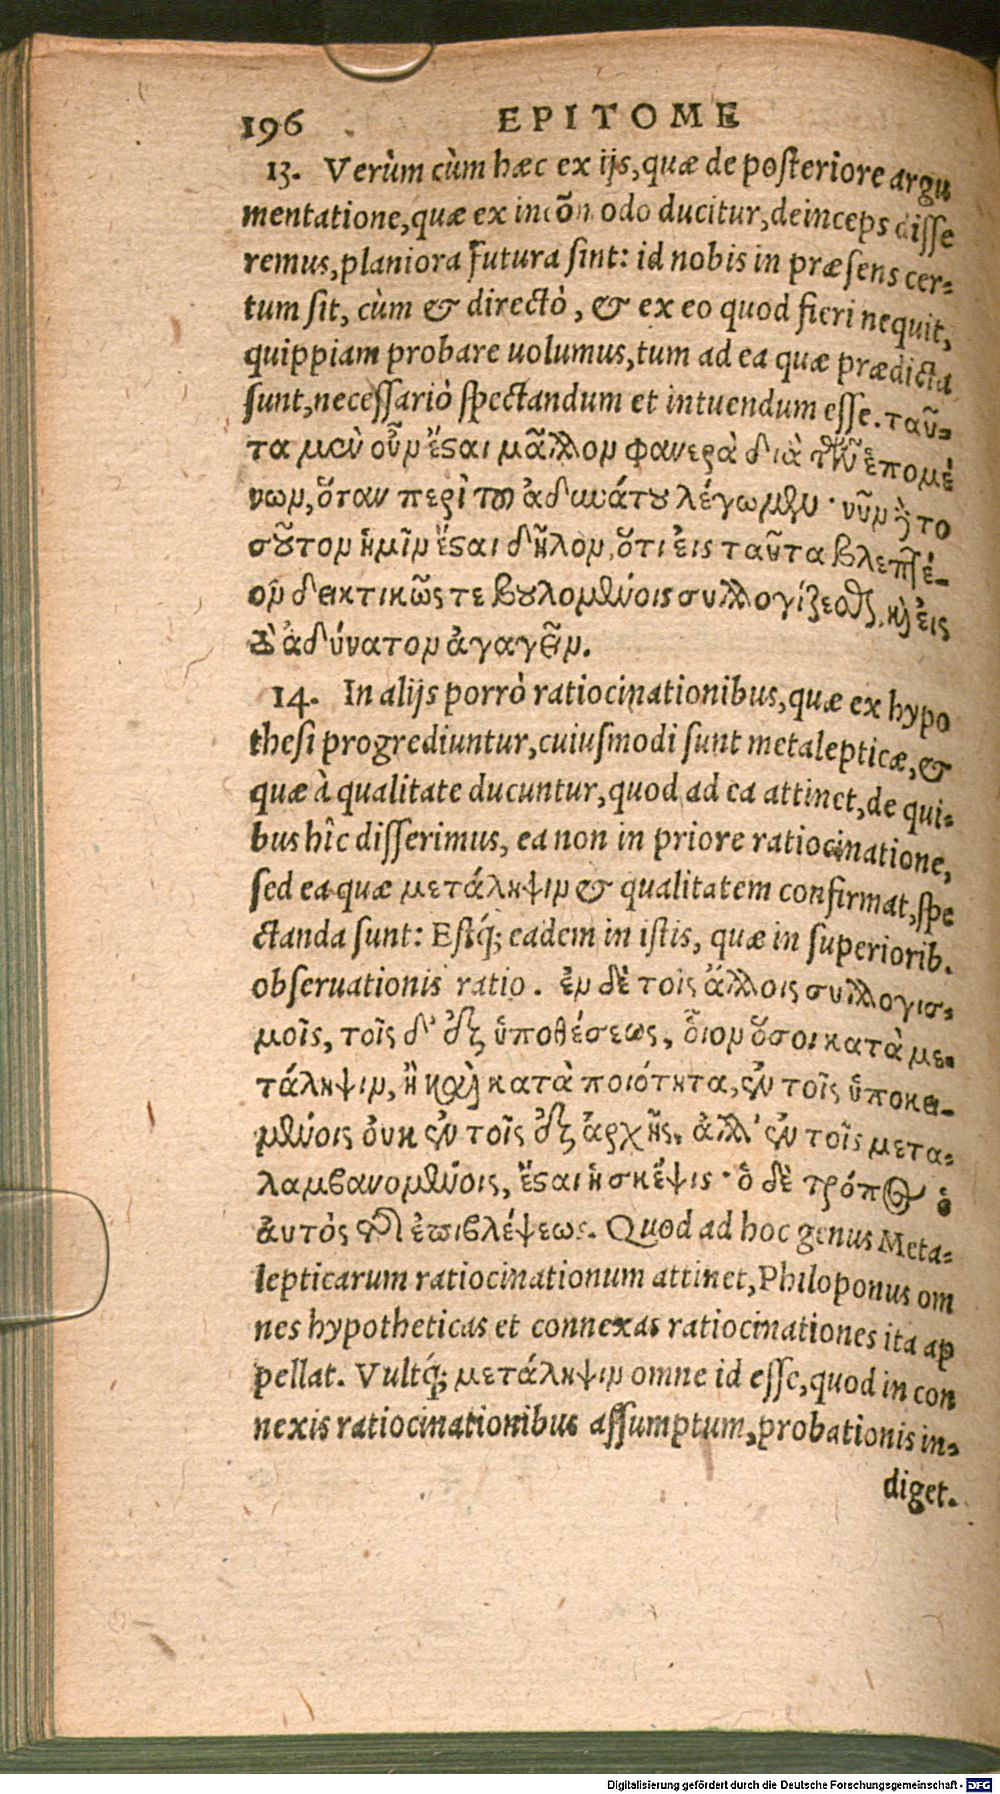 196 EPITOME
13. Verùm cùm hæc ex ijs, quæ de posteriore argu
mentatione, quæ ex incõmodo ducitur, deinceps disse
remus, planiora futura sint: id nobis in præsens cer-
tum sit, cùm & directò, & ex eo quod fieri nequit,
quippiam probare uolumus, tum ad ea quæ prædicta
sunt, necessariò spectandum et intuendum esse. ταῦ-
τα μὲν οὖν ἔσαι μᾶλλον φανερὰ διὰ τῶν ἑπομέ
νων, ὅταν περὶ τοῦ ἀδυνάτου λέγωμεν· νῦν ἢ το
σοῦτον ἡμῖν ἔσαι δῆλον, ὅτι εἰς ταῦτα βλεπτέ-
ον δεικτικῶς τε βουλομένοις συλλογίζεσθαι, καὶ εἰς
τὸ ἀδύνατον ἀγαγεῖν.
14. In alijs porrò ratiocinationibus, quæ ex hypo
thesi progrediuntur, cuiusmodi sunt metalepticæ, &
quæ à qualitate ducuntur, quod ad ea attinet, de qui-
bus hîc disserimus, ea non in priore ratiocinatione,
sed ea quæ μετάληψιν & qualitatem confirmat, spe
ctanda sunt: Estq́; eadem in istis, quæ in superiorib.
obseruationis ratio. ἐν δὲ τοῖς ἄλλοις συλλογισ-
μοῖς, τοῖς δ' ἐξ ὑποθέσεως, οἷον ὅσοι κατὰ με-
τάληψιν, ἢ καὶ κατὰ ποιότητα, ἐν τοῖς ὑποκει-
μένοις οὐκ ἐν τοῖς ἐξ ἀρχῆς, ἀλλ' ἐν τοῖς μετα-
λαμβανομένοις, ἔσαι ἡ σκέψις· ὁ δὲ τρόπος ὁ
αὐτὸς τῆς ἐπιβλέψεως. Quod ad hoc genus Meta-
lepticarum ratiocinationum attinet, Philoponus om
nes hypotheticas et connexas ratiocinationes ita ap
pellat. Vultq́; μετάληψιν omne id esse, quod in con
nexis ratiocinationibus assumptum, probationis in-
diget.
Digitalisierung gefördert durch die Deutsche Forschungsgemeinschaft - DFG